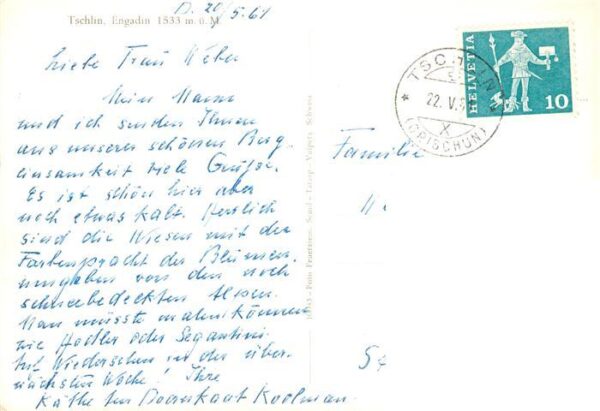 D. 20/5.61
Tschlin, Engadin 1533 m. ü. M.
Liebe Frau Weber
Mein Mann
und ich senden Ihnen
aus unserer schönen Berg
einsamkeit viele Grüße.
Es ist schön hier aber
noch etwas kalt. Herrlich
sind die Wiesen mit der
Farbenpracht der Blumen,
umgeben von den noch
schneebedeckten Alpen.
Man müsste malen können
wie Hodler oder Segantini
Auf Wiedersehen in der über-
nächsten Woche! Ihre
Käthe Doornkaat Koolman
Familie
HELVETIA
10
TSCHLIN
22. V.
X
(CRISCHUN)